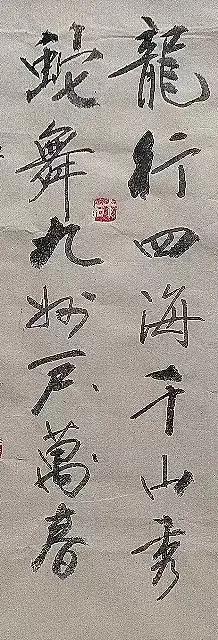 龍行四海千山秀
蛇舞九州戶萬春